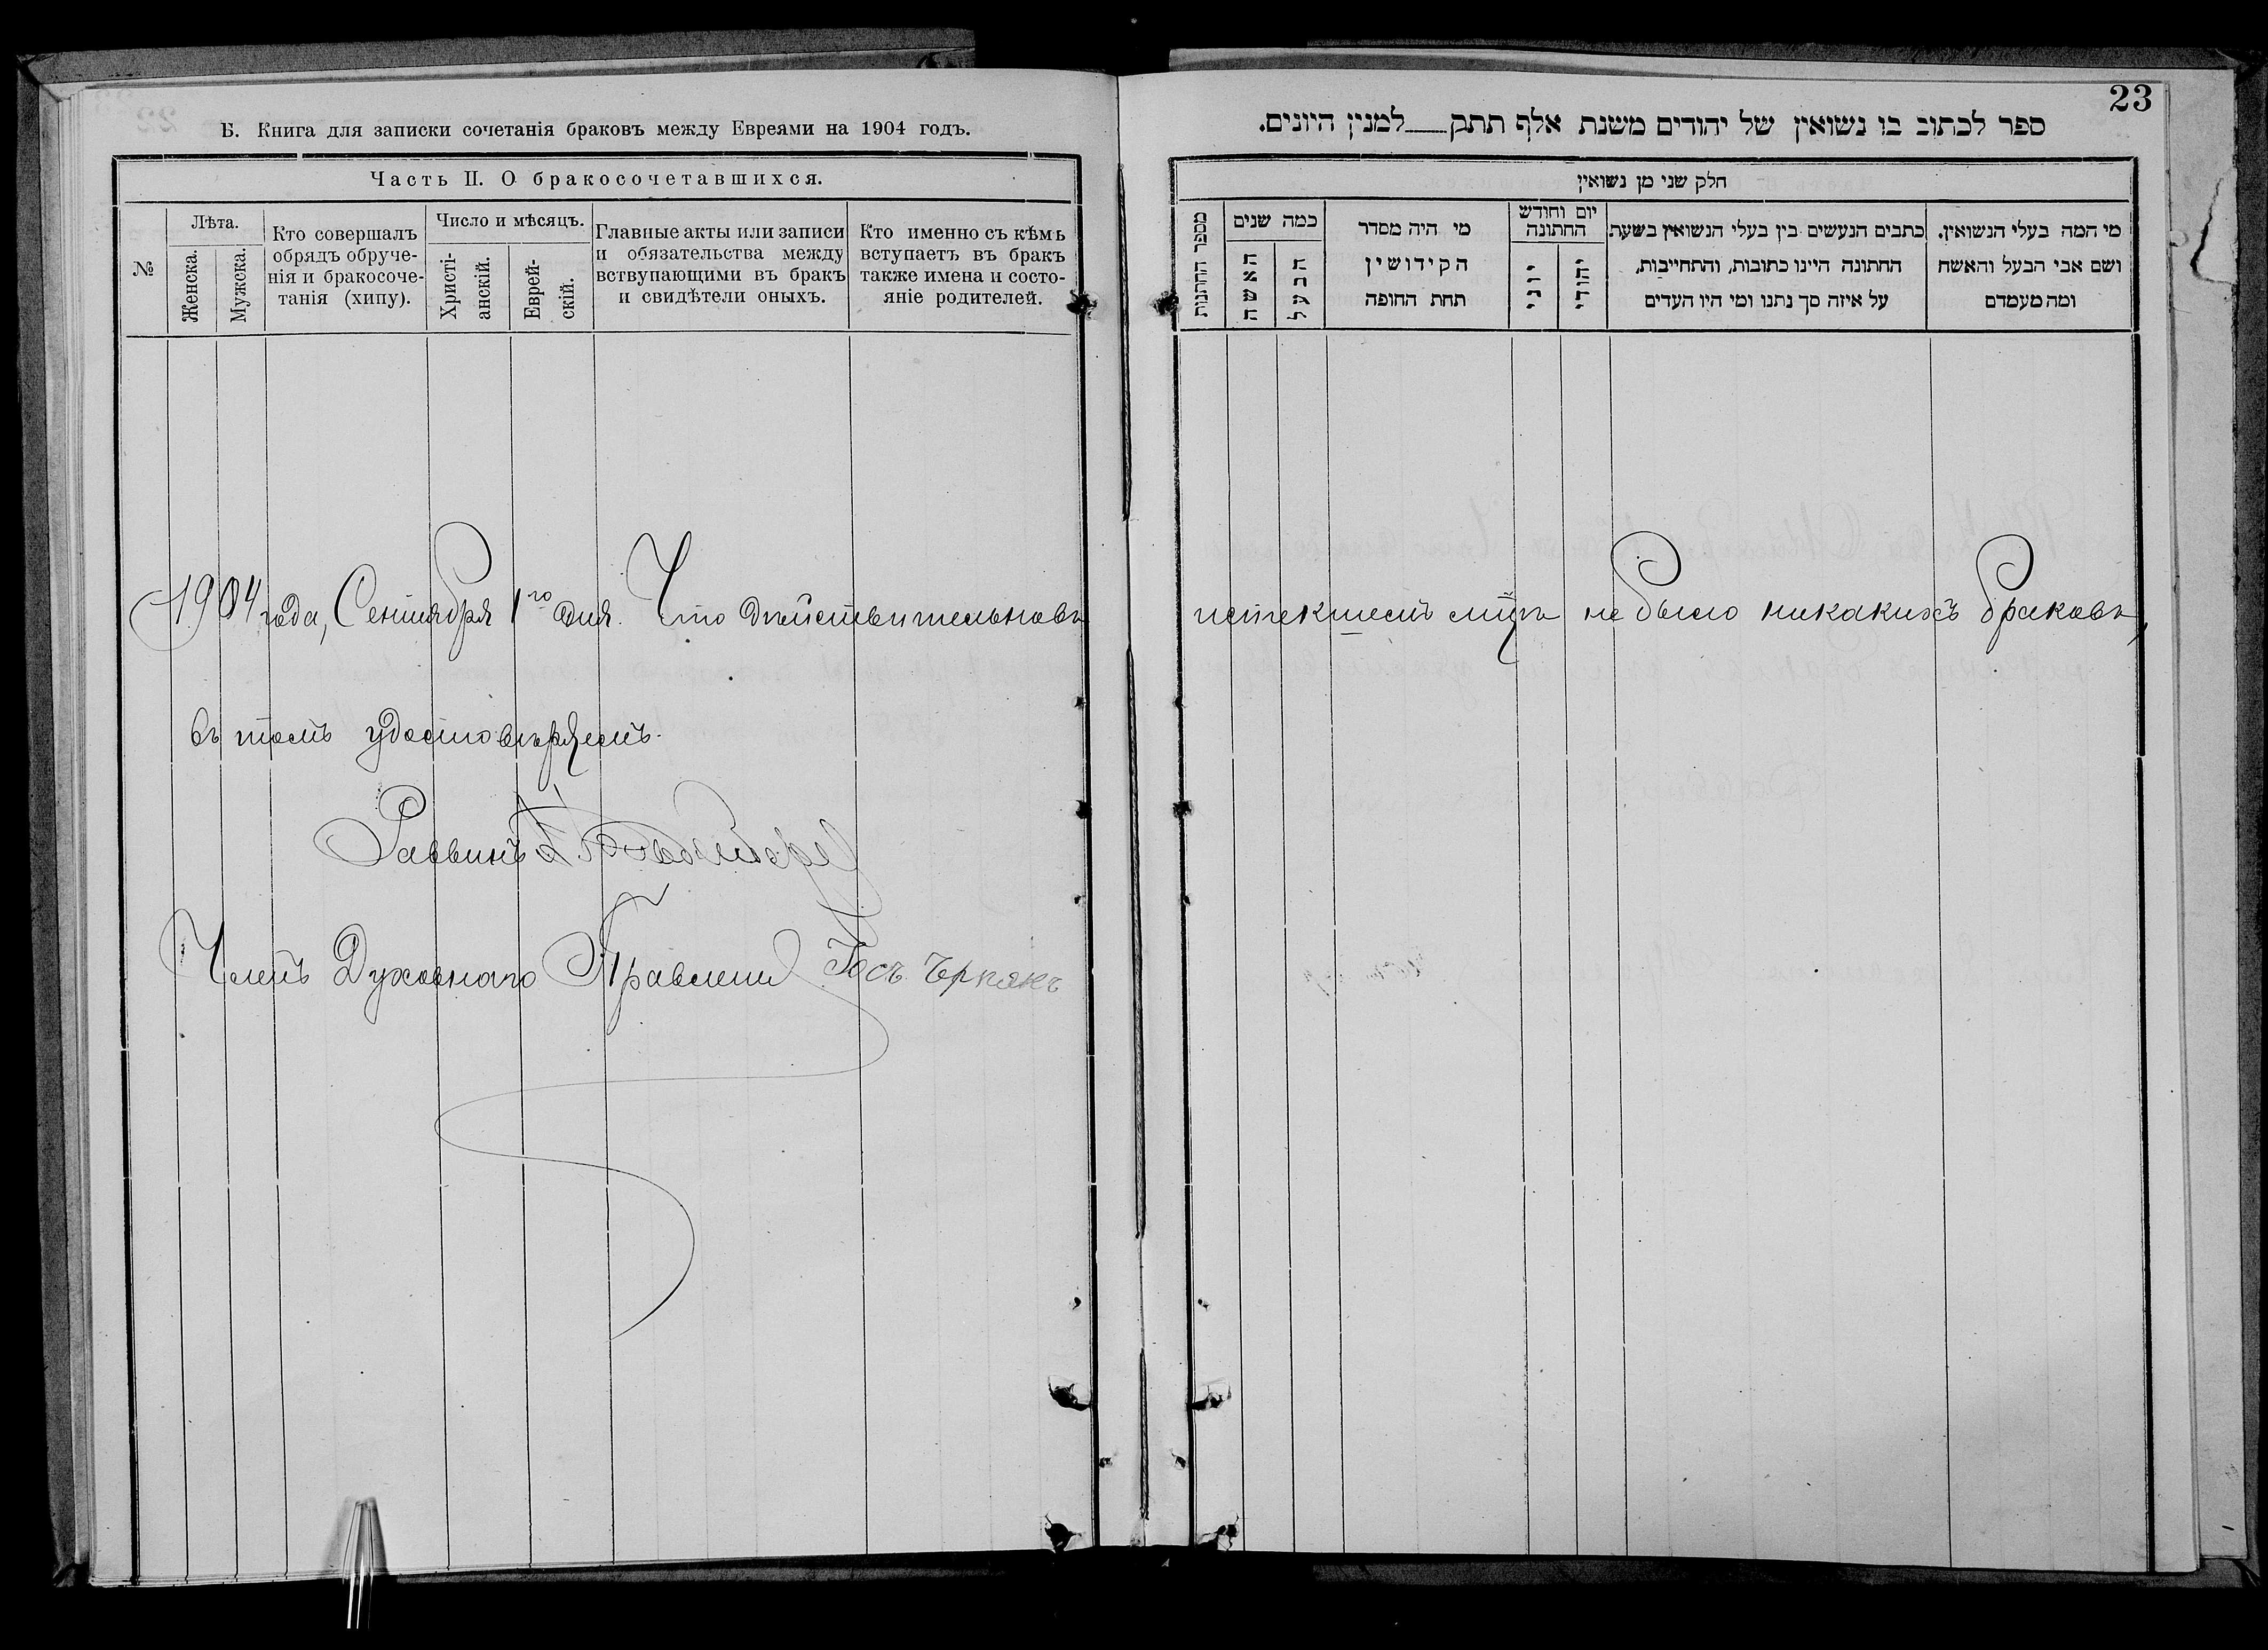 Б. Книга для записки сочетанія браковъ между Евреями на 1904 годъ.
Часть II. О бракосочетавшихся.
№
Лѣта.
Женска.
Мужска.
Кто совершалъ
обрядъ обруче-
нія и бракосоче-
танія (хипу).
Число и мѣсяцъ.
Христі-
анскій.
Еврей-
скій.
Главные акты или записи
и обязательства между
вствупающими въ бракъ
и свидѣтели оныхъ.
Кто именно съ кѣмъ
вступаетъ въ бракъ
также имена и состо-
яніе родителей.
23
ספר לכתוב בו נשואין של יהודים משנת אלף תתק למנין היונים.
חלק שני מן נשואין
מספר החתנות
כמה שנים
האשה
הבעל
מי היה מסדר
הקידושין
תחת החופה
יום וחודש
החתונה
יוני
יהודי
כתבים הנעשים בין בעלי הנשואין בשעת
החתונה היינו כתובות, והתחייבות,
על איזה סך נתנו ומי היו העדים
מי המה בעלי הנשואין.
ושם אבי הבעל והאשה
ומה מעמדם
1904 года, Сентября 1го дня. Что дѣйствительно въ истекшемъ мцѣ не было никакихъ браковъ,
въ томъ удостовѣряемъ.
Раввинъ
Членъ Духовнаго Правленія